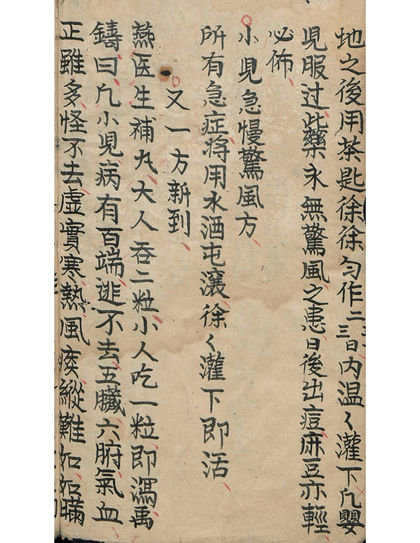 地之後用茶匙徐徐勻作二三日內温〻灌下凢嬰
児服过此藥永無驚風之患日後出痘麻豆亦輕
必佈
小児急慢驚風方
所有急症将用水酒屯瀼徐〻灌下即活
又一方新到
燕医生補丸大人吞二粒小人吃一粒即瀉禹
鑄曰凢小児病有百端逃不去五臟六腑氣血
正雖多怪不去虛實寒熱風痰縱難如如瞞